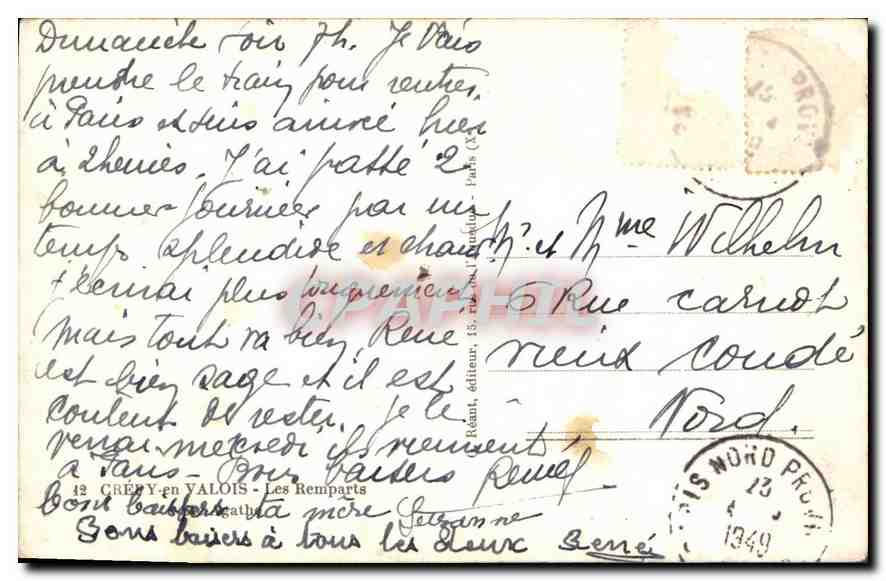 Dimanche soir 7h. Je vais
prendre le train pour rentrer
à Paris et suis arrivé hier
à 2 heures. J'ai passé 2
bonnes journées par un
temps splendide et chaud
t'écrirai plus longuement
mais tout va bien, René
est bien sage et il est
content de rester. je le
verrai mercredi ils viennent
à Paris - Bons baisers
12 CRÉPY-en VALOIS - Les Remparts
Agathe
bons baisers ta mère Suzanne
bons baisers à tous les deux René
Réant, éditeur, 15, rue de l'Aqueduc - Paris (X
M. et Mme Wilhelm
6 Rue Carnot
Vieux Condé
Nord.
PARIS NORD PROV
23
1949
PROV
CPAPHIL